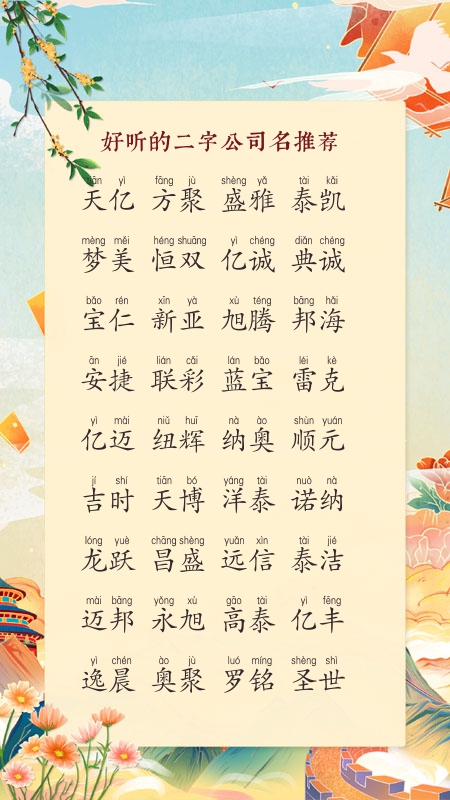 好听的二字公司名推荐
tiān yì fāng jù shèng yǎ tài kǎi
天亿 方聚 盛雅 泰凯
mèng měi héng shuāng yì chéng diǎn chéng
梦美 恒双 亿诚 典诚
bǎo rén xīn yà xù téng bāng hǎi
宝仁 新亚 旭腾 邦海
ān jié lián cǎi lán bǎo léi kè
安捷 联彩 蓝宝 雷克
yì mài niǔ huī nà ào shùn yuán
亿迈 纽辉 纳奥 顺元
jí shí tiān bó yáng tài nuò nà
吉时 天博 洋泰 诺纳
lóng yuè chāng shèng yuǎn xìn tài jié
龙跃 昌盛 远信 泰洁
mài bāng yǒng xù gāo tài yì fēng
迈邦 永旭 高泰 亿丰
yì chén ào jù luó míng shèng shì
逸晨 奥聚 罗铭 圣世